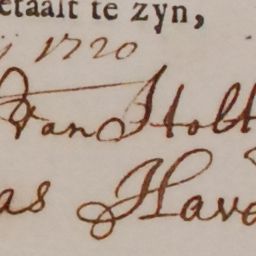 etaalt te zyn,
1720
van Holt
as Have